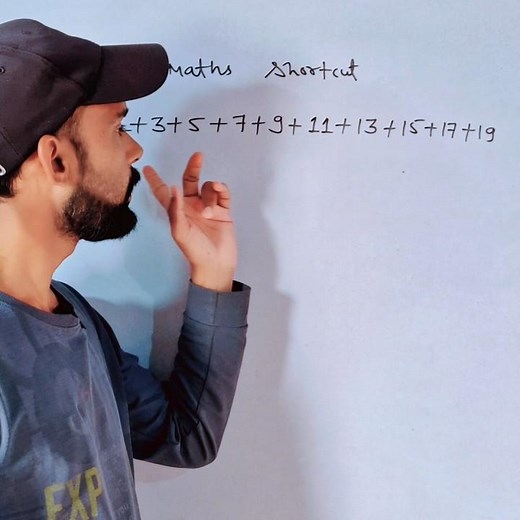 Maths Shortcut
+3+5+7+9+11+13+15+17+19
EXP